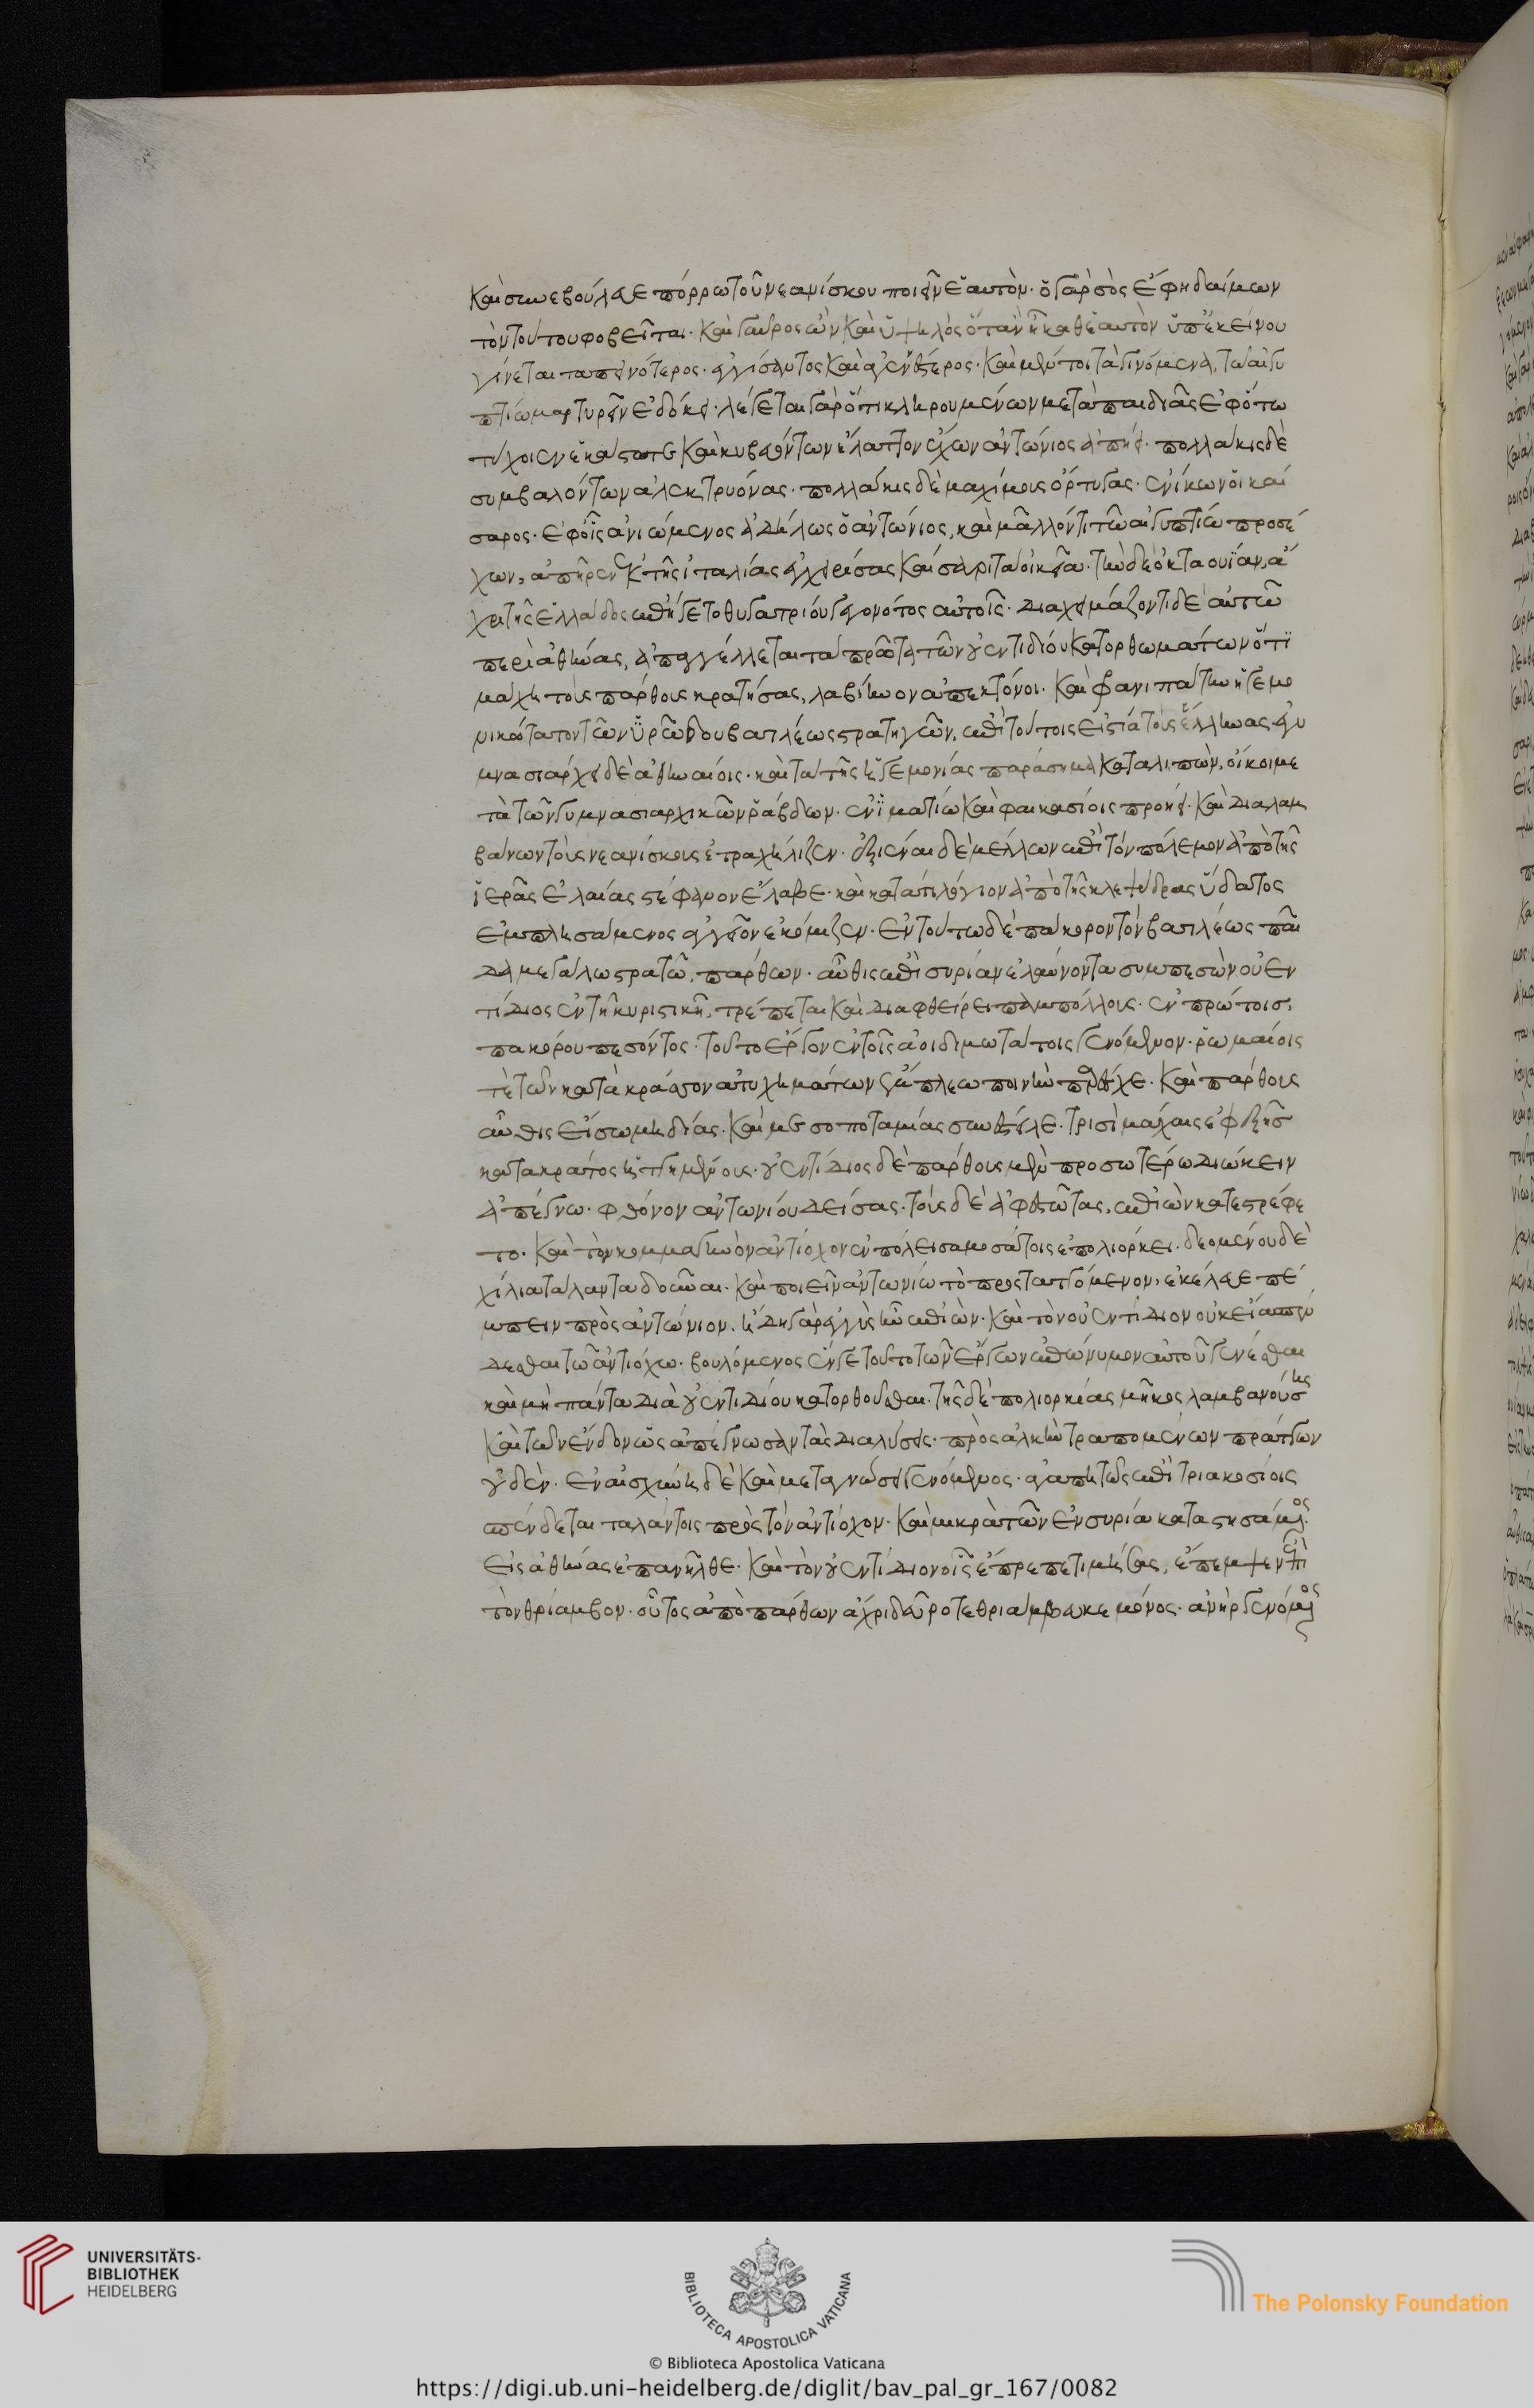 καὶ συνεβούλευε πόρρω τοῦ νεανίσκου ποιεῖν ἑαυτόν· ὁ γὰρ σὸς ἔφη δαίμων
τὸν τούτου φοβεῖται· καὶ γαῦρος ὢν καὶ ὑψηλὸς ὅταν ἦ καθ' ἑαυτὸν ὑπ' ἐκείνου
γίνεται ταπεινότερος· ἐγγίσαντος καὶ ἀγενέστερος· καὶ μέντοι τὰ γινόμενα, τῶ αἰγυ
πτίω μαρτυρεῖν ἐδόκει· λέγεται γὰρ ὅτι κληρουμένων μετὰ παιδιᾶς ἐφ' ὅτω
τύχοιεν ἑκάστοτε καὶ κυβευόντων ἔλαττον ἔχων ἀντώνιος ἀπήει· πολλάκις δὲ
συμβαλόντων ἀλεκτρυόνας· πολλάκις δὲ μαχίμους ὄρτυγας· ἐνίκων οἱ καί
σαρος· ἐφ' οἷς ἀνιώμενος ἀδήλως ὁ ἀντώνιος, καὶ μᾶλλόν τι τῶ αἰγυπτίω προσέ
χων, ἀπῆρεν ἐκ τῆς ἰταλίας ἐγχειρίσας καίσαρι τὰ οἰκεῖα· τὴν δὲ ὀκταουΐαν, ἄ
χρι τῆς ἑλλάδος ἐπήγετο θυγατρίου γεγονότος αὐτοῖς· διαχειμάζοντι δὲ αὐτῶ
περὶ ἀθήνας, ἀπαγγέλλεται τὰ πρῶτα τῶν οὐεντιδίου κατορθωμάτων ὅτι
μάχη τοὺς πάρθους κρατήσας, λαβίηνον ἀπεκτόνοι· καὶ φρανιπάτην ἡγεμο
νικώτατον τῶν ὑρώδου βασιλέως στρατηγῶν, ἐπὶ τούτοις εἱστία τοὺς ἕλληνας ἐγυ
μνασιάρχει δὲ ἀθηναίοις· καὶ τὰ τῆς ἡγεμονίας παράσημα καταλιπών, οἴκοι με
τὰ τῶν γυμνασιαρχικῶν ῥάβδων· ἐν ἱματίω καὶ φαικασίοις προήει· καὶ διαλαμ
βάνων τοὺς νεανίσκους ἐτραχήλιζεν· ἐξιέναι δὲ μέλλων ἐπὶ τὸν πόλεμον ἀπὸ τῆς
ἱερᾶς ἐλαίας στέφανον ἔλαβε· καὶ κατά τι λόγιον ἀπὸ τῆς κλεψύδρας ὕδατος
ἐμπλησάμενος ἀγγεῖον ἐκόμιζεν· ἐν τούτω δὲ πάκορον τὸν βασιλέως παῖ
δα μεγάλω στρατῶ, πάρθων· αὖθις ἐπὶ συρίαν ἐλαύνοντα συμπεσὼν οὐεν
τίδιος ἐν τῆ κυρριστικῆ, τρέπεται καὶ διαφθείρει παμπόλλους· ἐν πρώτοις,
πακόρου πεσόντος· τοῦτο ἔργον ἐν τοῖς ἀοιδιμωτάτοις γενόμενον· ῥωμαίοις
τε τῶν κατὰ κράσσον ἀτυχημάτων ἔκπλεω ποινὴν παρέσχε· καὶ πάρθους
αὖθις εἴσω μηδίας· καὶ μεσοποταμίας συνέστειλε· τρισὶ μάχαις ἐφεξῆς
κατακράτος ἡττημένους· οὐεντίδιος δὲ πάρθους μὲν προσωτέρω διώκειν
ἀπέγνω· φθόνον ἀντωνίου δείσας· τοὺς δὲ ἀφεστῶτας, ἐπιὼν κατεστρέφε
το· καὶ τὸν κομμαγηνὸν ἀντίοχον ἐν πόλει σαμοσάτοις ἐπολιόρκει· δεομένου δὲ
χίλια τάλαντα δοῦναι· καὶ ποιεῖν ἀντωνίω τὸ προσταττόμενον, ἐκέλευε πέ
μπειν πρὸς ἀντώνιον, ἤδη γὰρ ἐγγὺς ἦν ἐπιών· καὶ τὸν οὐεντίδιον οὐκ εἴα σπέν
δεσθαι τῶ ἀντιόχω· βουλόμενος ἕν γε τοῦτο τῶν ἔργων ἐπώνυμον αὐτοῦ γενέσθαι
καὶ μὴ πάντα διὰ οὐεντιδίου κατορθοῦσθαι· τῆς δὲ πολιορκίας μῆκος λαμβανούσης
καὶ τῶν ἔνδον ὡς ἀπέγνωσαν τὰς διαλύσεις· πρὸς ἀλκὴν τραπομένων πράττων
οὐδέν· ἐν αἰσχύνη δὲ καὶ μεταγνώσει γενόμενος· ἀγαπητῶς ἐπὶ τριακοσίοις
σπένδεται ταλάντοις πρὸς τὸν ἀντίοχον· καὶ μικρὰ τῶν ἐν συρία καταστησάμενος·
εἰς ἀθήνας ἐπανῆλθε· καὶ τὸν οὐεντίδιον οἷς ἔπρεπε τιμήσας, ἔπεμψεν ἐπὶ
τὸν θρίαμβον· οὗτος ἀπὸ πάρθων ἄχρι δεῦρο τεθριάμβευκε μόνος· ἀνὴρ γενόμενος
UNIVERSITÄTS-
BIBLIOTHEK
HEIDELBERG
BIBLIOTECA APOSTOLICA VATICANA
The Polonsky Foundation
© Biblioteca Apostolica Vaticana
https://digi.ub.uni-heidelberg.de/diglit/bav_pal_gr_167/0082